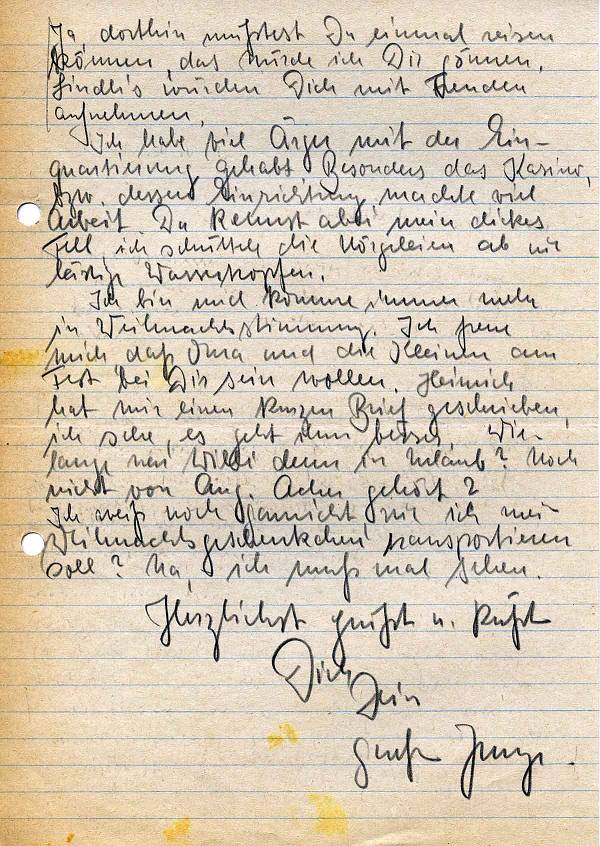 Ja dorthin müßtest Du einmal reisen
können, das würde ich Dir gönnen.
würden Dich mit Freuden
aufnehmen.
Ich habe viel Ärger mit der Ein-
quartierung gehabt. Besonders das Kasino,
bzw. dessen Einrichtung machte viel
Arbeit. Du kennst aber mein dickes
Fell, ich schüttele die Nörgeleien ab wie
lästige Wassertropfen.
Ich bin und komme immer mehr
in Weihnachtsstimmung. Ich freue
mich daß Oma und die Kleinen am
Fest bei Dir sein wollen. Heinrich
hat mir einen kurzen Brief geschrieben,
ich sehe, es geht ihm besser. Wie-
lange war Willi denn in Urlaub? Noch
nicht von Aug. gehört?
Ich weiß noch garnicht wie ich mein
soll? Na, ich muß mal sehen.
Herzlichst grüßt u. küßt
Dich
Dein
großer Junge.